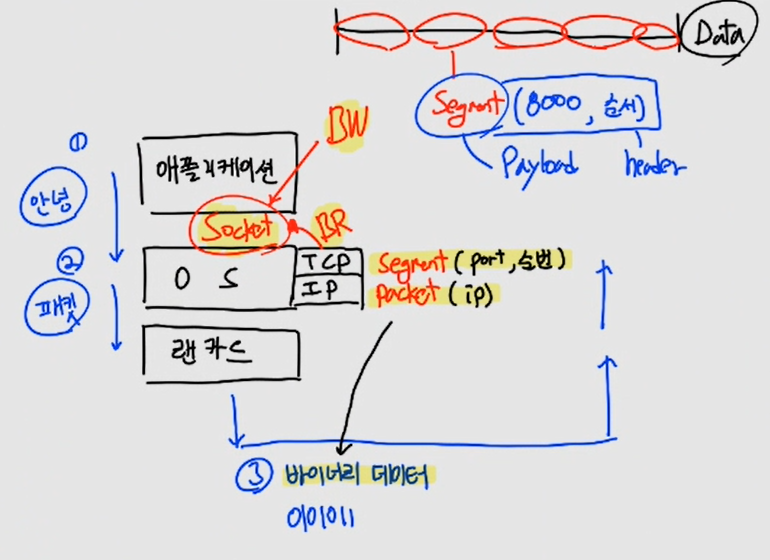 Data
Segment (8000, 순서)
Payload header
①
BW
애플리케이션
안녕
Socket BR
②
OS TCP Segment (port, 순번)
IP packet (ip)
패킷
랜카드
③ 바이너리 데이터
0101011